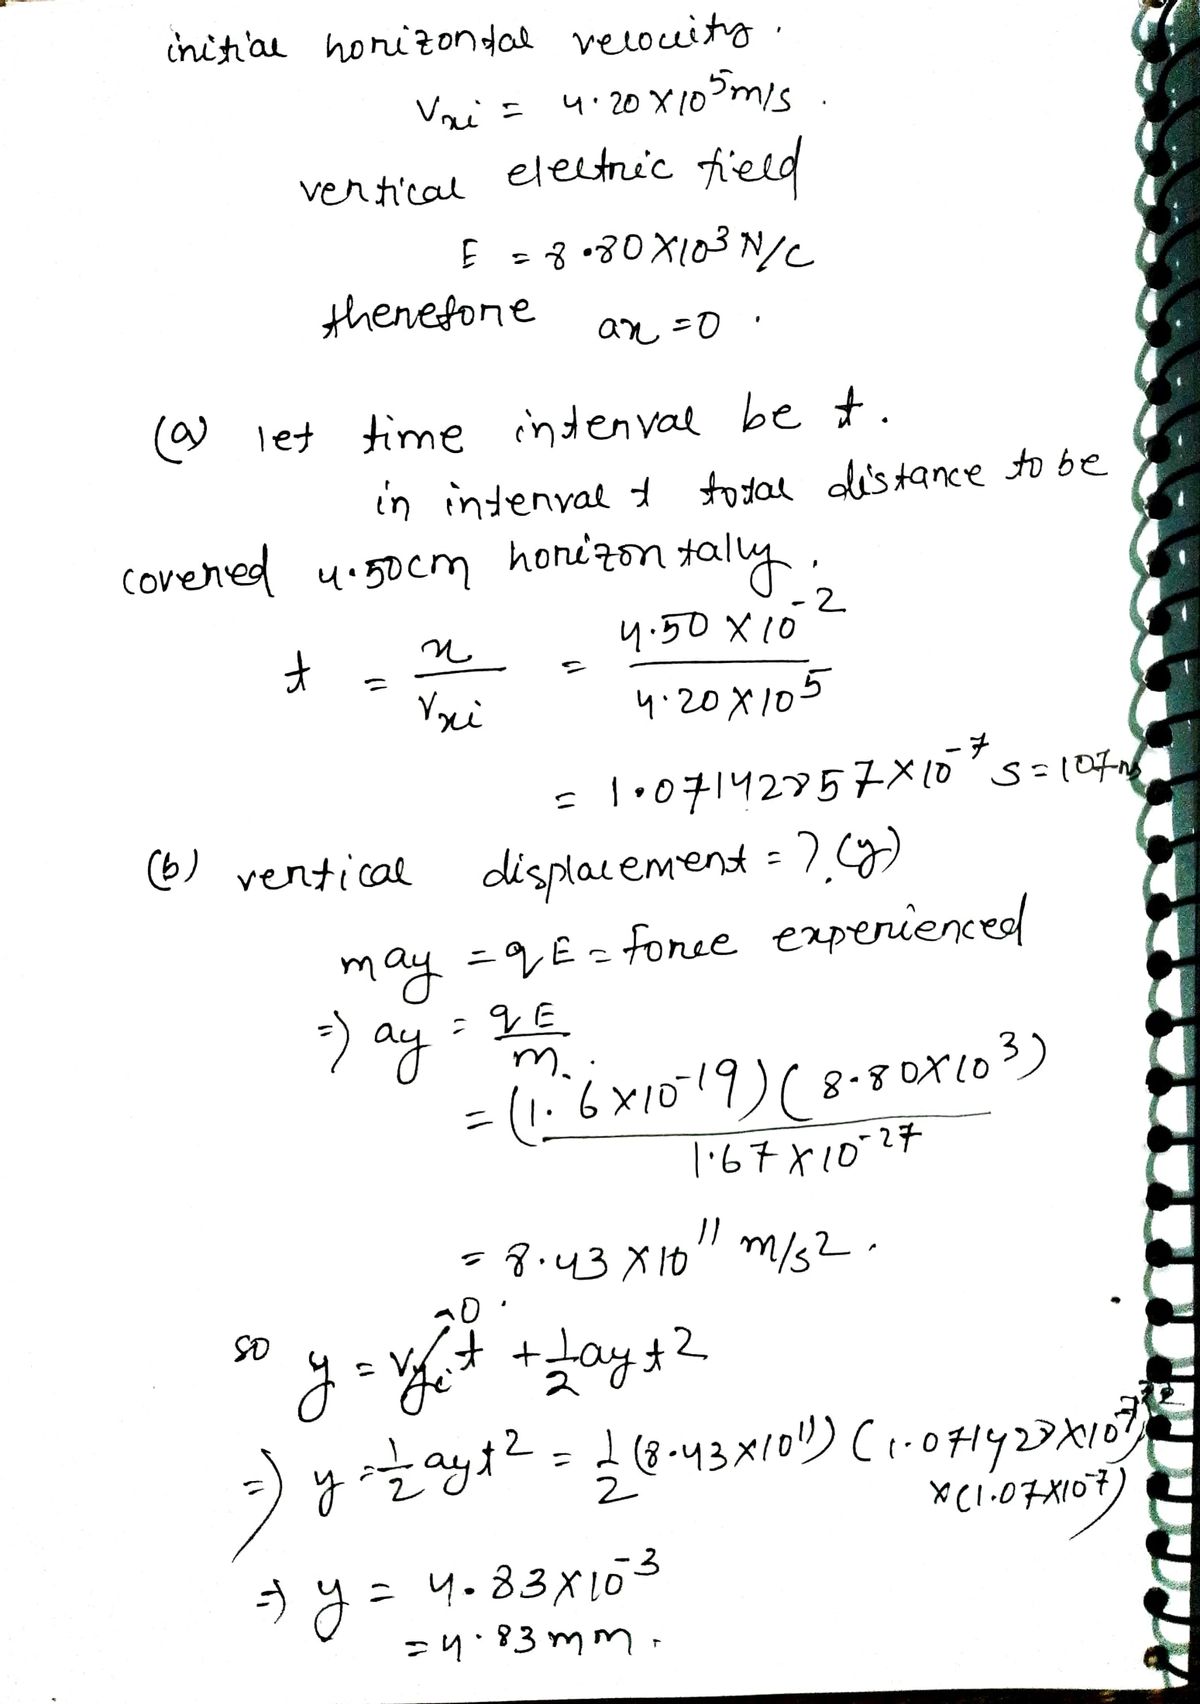 initial horizontal velocity.
Vxi = 4.20 X 10^5 m/s.
vertical electric field
E = 8.80 X 10^3 N/C
therefore ax = 0.
(a) let time interval be t.
in interval t total distance to be
covered 4.50cm horizontally.
t = x / Vxi = 4.50 X 10^-2 / 4.20 X 10^5
= 1.07142857 X 10^-7 s = 107 ns
(b) vertical displacement = ? (y)
may = qE = force experienced
=> ay = qE / m.
= (1.6 X 10^-19) (8.80 X 10^3) / 1.67 X 10^-27
= 8.43 X 10^11 m/s2.
so y = vyi t + 1/2 ay t2
=> y = 1/2 ay t2 = 1/2 (8.43 X 10^11) (1.071428 X 10^-7)
X (1.07 X 10^-7)
=> y = 4.83 X 10^-3
= 4.83 mm.